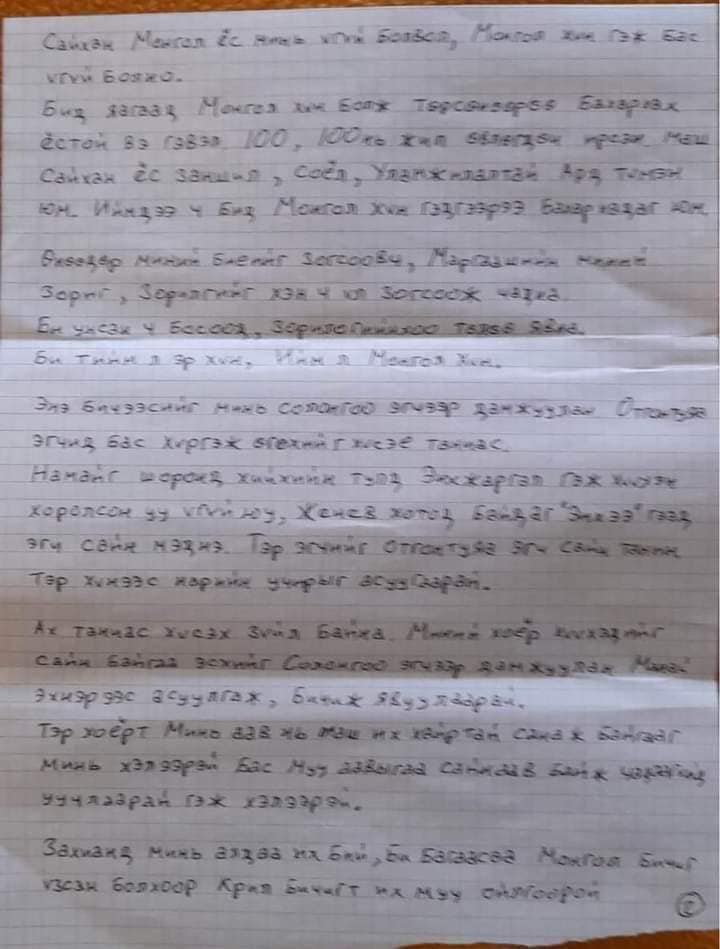 Сайхан Монгол ёс минь үгүй Болвол, Монгол хүн гэж Бас
үгүй Болно.
Бид яагаад Монгол хүн Болж Төрсөнөөрөө Бахархах
ёстой вэ гэвэл 100, 100нь жил өвлөгдөн ирсэн маш
Сайхан ёс заншил, Соёл, Уламжлалтай Ард Түмэн
юм. Иймдээ ч Бид Монгол хүн гэдгээрээ Бахархадаг юм.
Өнөөдөр миний Биеийг Зогсоовч, Маргаашийн миний
Зориг, Зорилгийг хэн ч үл Зогсоож чадна.
Би унсан ч Босоод, Зорилгийнхоо Төлөө явна.
Би тийм л эр хүн, Ийм л Монгол хүн.
Энэ Бичээсийг минь Солонгоо эгчээр дамжуулан Отгонтуяа
эгчид Бас хүргэж өгөхийг хүсэе танаас.
Намайг шоронд хийхийн тулд Энхжаргал гэж хүүхэн
хоролсон уу үгүй юу, Женев хотод Байдаг "Энхээ" гээд
эгч сайн мэднэ. Тэр эгчийг Отгонтуяа эгч сайн танин
Тэр хүнээс нарийн учирыг асуугаарай.
Ах танаас хүсэх зүйл Байна. Миний хоёр хүүхэдийг
сайн Байгаа эсхийг Солонгоо эгчээр дамжуулан Манай
Эхнэрээс асуулгаж, Бичиж явуулаарай.
Тэр хоёрт Минь аав нь маш их хайртай санаж Байгааг
минь хэлээрэй Бас муу аавыгаа сайн аав Байж чадаагүйд
уучлаарай гэж хэлээрэй.
Захианд минь алдаа их Бий, Би Багаасаа Монгол Бичиг
үзсэн Болхоор Крил Бичигт их муу ойлгоорой
2